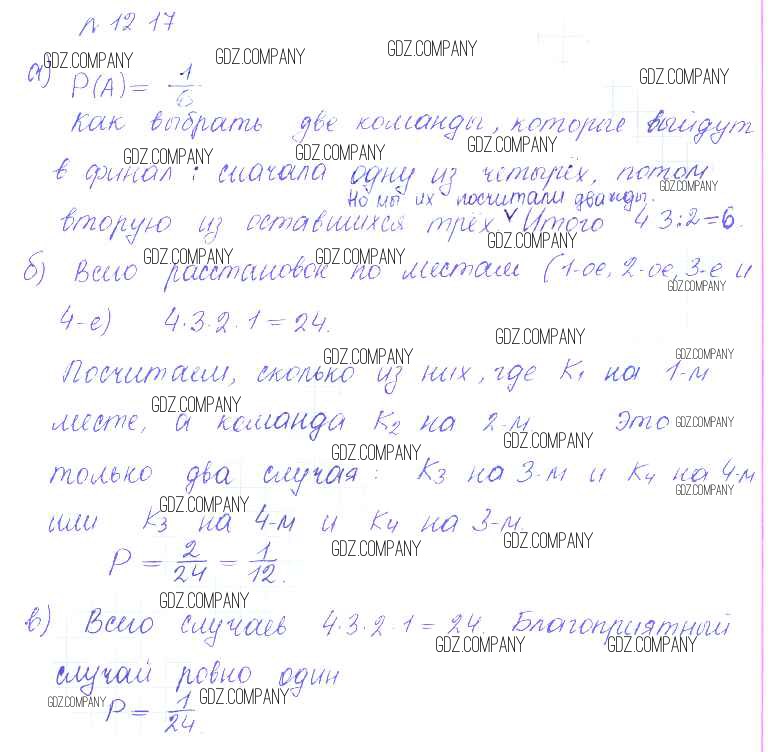 № 12 17
GDZ.COMPANY GDZ.COMPANY GDZ.COMPANY GDZ.COMPANY
а) P(A) = 1/6
Как выбрать две команды, которые выйдут
GDZ.COMPANY GDZ.COMPANY GDZ.COMPANY
в финал: сначала одну из четырёх, потом
Но мы их посчитали дважды. GDZ.COMPANY
вторую из оставшихся трёх ∨ Итого 4 3:2=6.
GDZ.COMPANY GDZ.COMPANY GDZ.COMPANY
б) Всего расстановок по местам (1-ое, 2-ое, 3-е и
GDZ.COMPANY
4-е) 4·3·2·1=24.
GDZ.COMPANY GDZ.COMPANY GDZ.COMPANY
Посчитаем, сколько из них, где K1 на 1-м
GDZ.COMPANY
месте, а команда K2 на 2-м Это GDZ.COMPANY
GDZ.COMPANY GDZ.COMPANY
только два случая: K3 на 3-м и K4 на 4-м
GDZ.COMPANY GDZ.COMPANY
или K3 на 4-м и K4 на 3-м.
P = 2/24 = 1/12. GDZ.COMPANY GDZ.COMPANY
GDZ.COMPANY
в) Всего случаев 4·3·2·1=24. Благоприятный
GDZ.COMPANY GDZ.COMPANY
случай ровно один
GDZ.COMPANY P = 1/24 GDZ.COMPANY